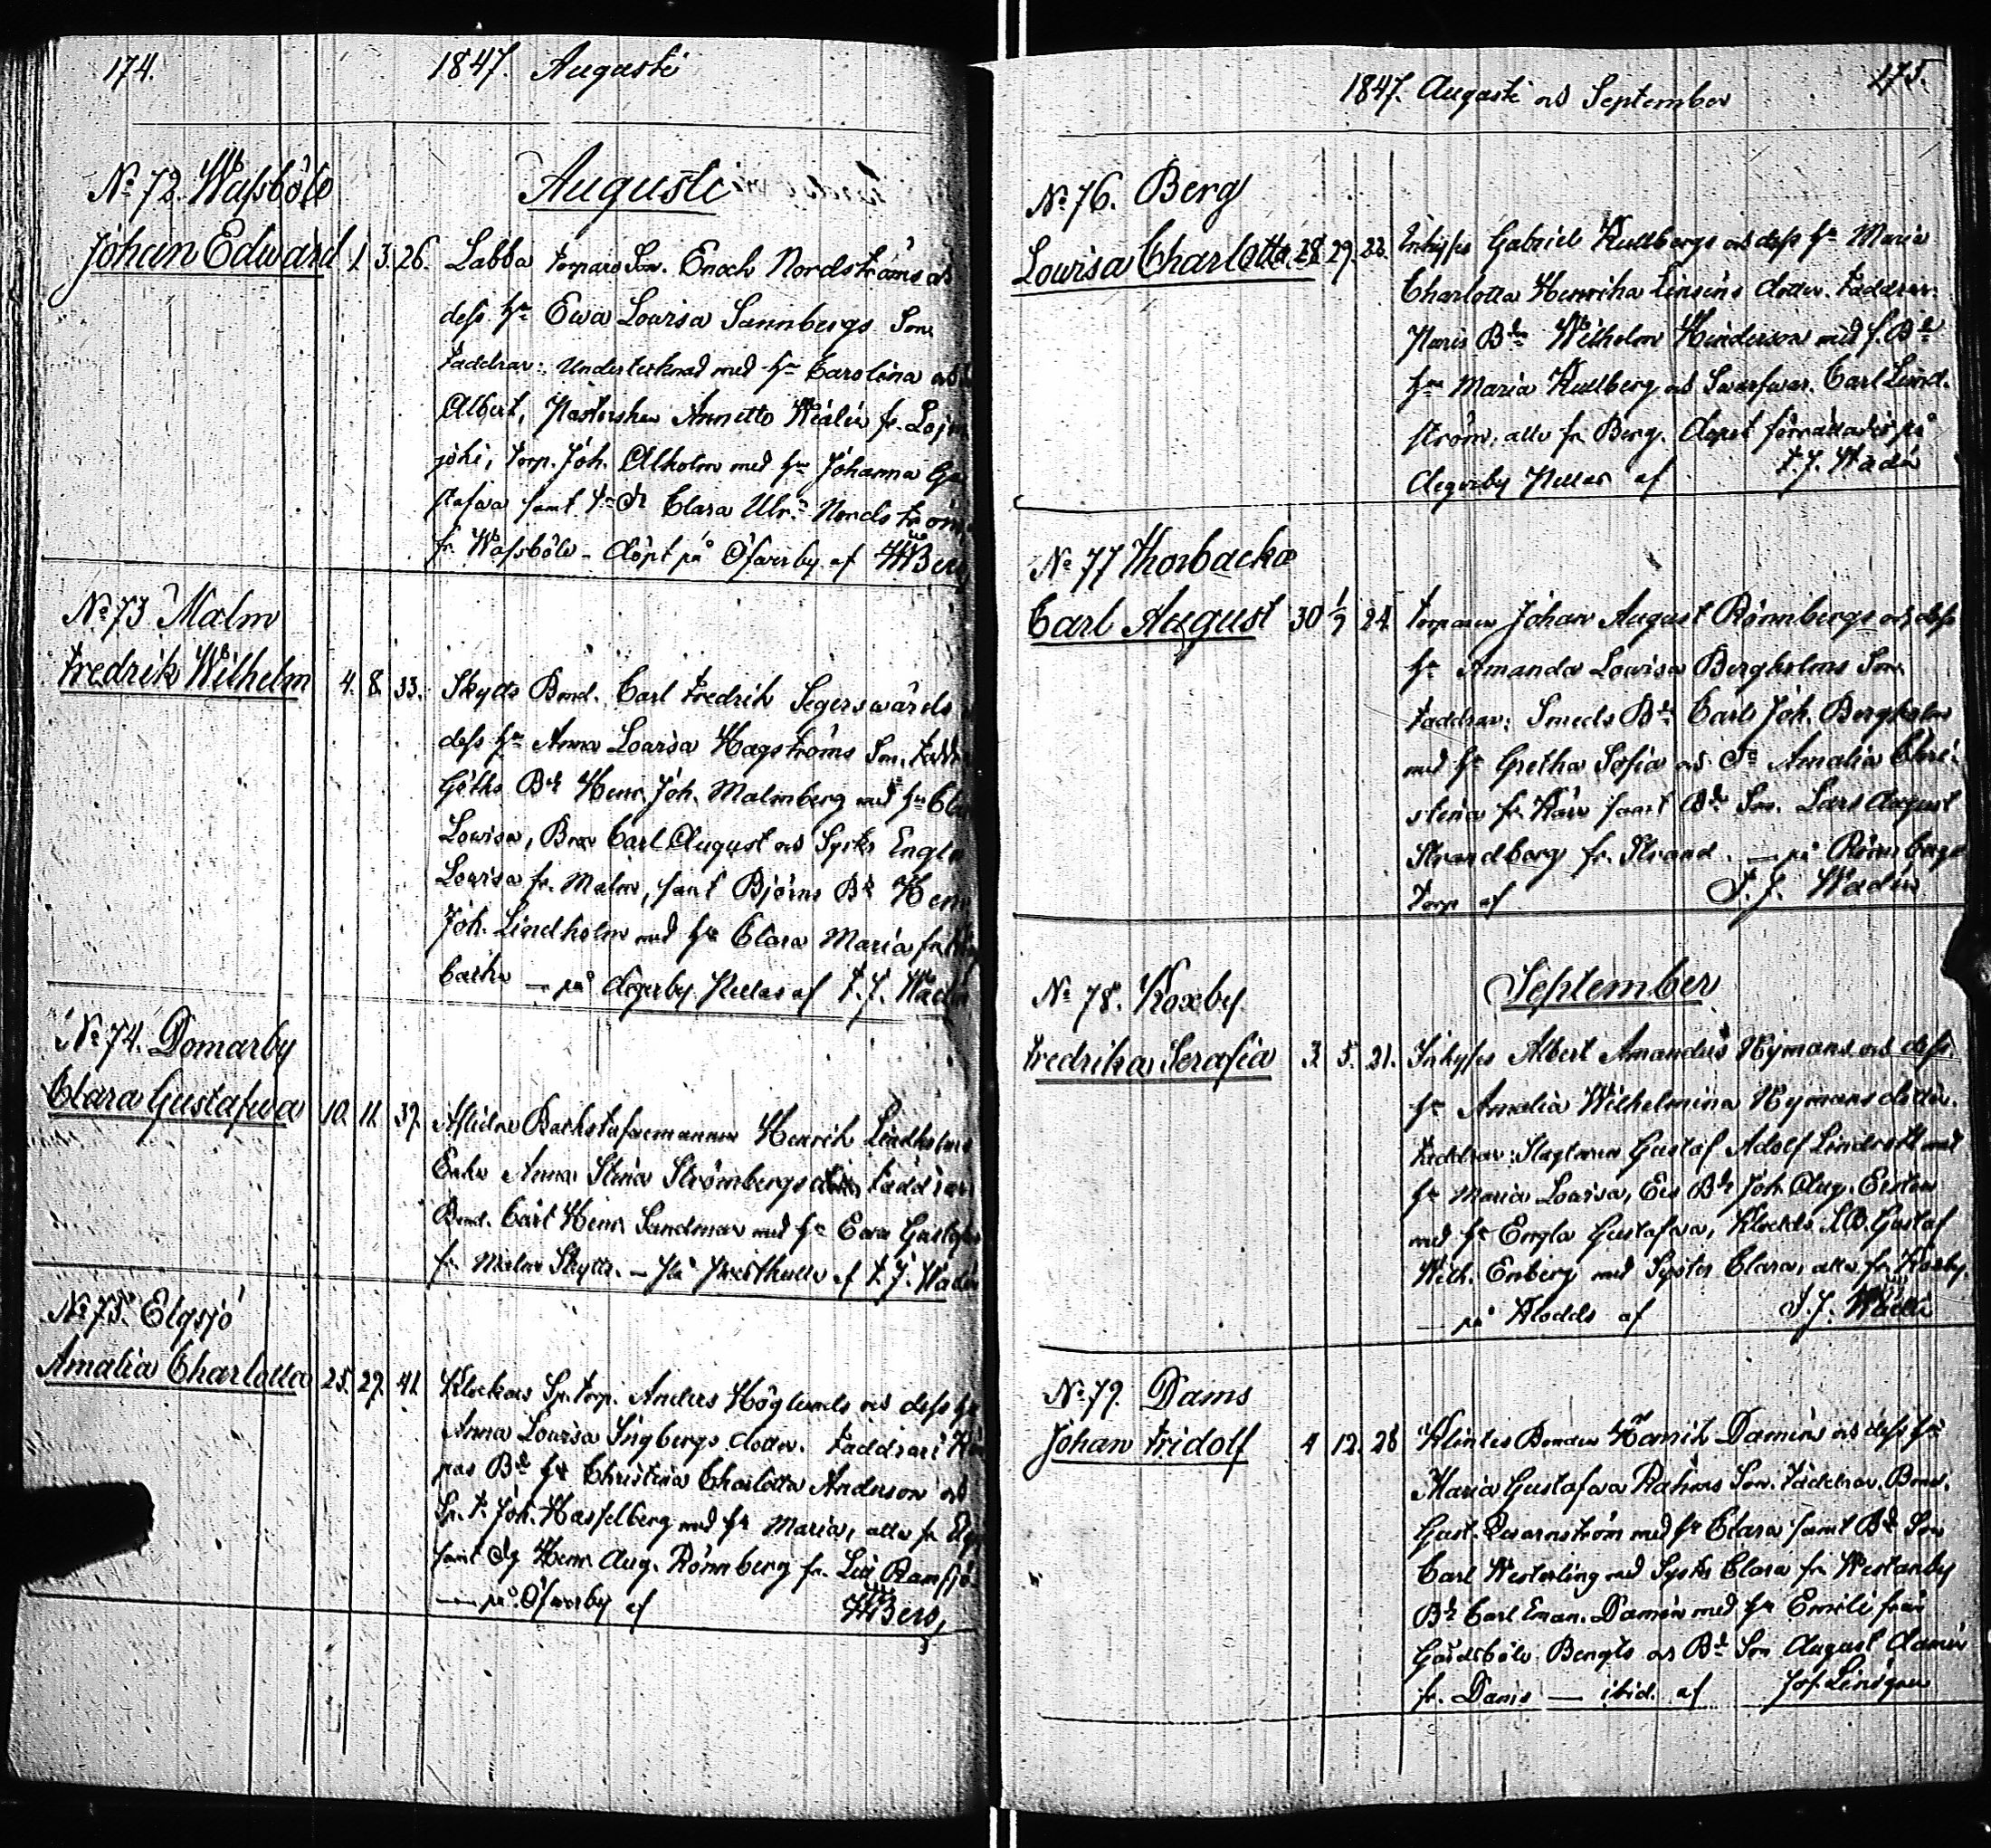 174.
1847. Augusti
Augusti
No 72. Wassböle
Johan Edward 1. 3. 26.
Labba torpare Son. Enoch Nordströms och
dess hu Ewa Lowisa Sannbergs Son.
Faddrar: Undertecknad med hu Carolina och
Albert, Pastorskan Annette fr. Loj
johi, torp. Joh. Alholm med hu Johanna Gu
stafva samt Clara Ulr. Nordström
fr. Wassböle - döpt på Öfverby af
No 73 Malm
Fredrik Wilhelm 4. 8. 33.
Skytts Bond. Carl Fredrik Segerswärds
dess hu Anna Lowisa Hagströms Son. Faddr
Göths Bd Henr. Joh. Malmberg med hu
Lowisa, Bror Carl August och Syster Engla
Lowisa fr. Malm, samt Björns Bd Henr
Joh. Lindholm med hu Clara Maria fr.
backa — på Degerby Kullas af F. J. Wadén
No 74. Domarby
Clara Gustafva 10. 11. 37.
Aflidne Backstufvumannen Henrik Lindholms
Enka Anna Stina Strömbergs Faddrar:
Bond. Carl Henr. Sandman med hu Ewa Gustafva
fr. Malm Skytts. — på af F. J. Wadén
No 75. Elgsjö
Amalia Charlotta 25. 29. 41.
Klockars Sp. torp. Anders Höglunds och dess hu
Anna Lowisa Ingbergs dotter. Faddrar:
pas Bd hu Christina Charlotta Anderson och
Sp. T. Joh. Hasselberg med hu Maria, alla fr. Elg
samt Dg Henr. Aug. Rönnberg fr. Lill Ramsjö
— på Öfverby af
1847. Augusti och September
175.
No 76. Berg
Lowisa Charlotta 28. 29. 22.
Inhyses Gabriel Kullbergs och dess hu Maria
Charlotta Henrika Linséns dotter. Faddrar:
Bdn Wilhelm Hinderson med f. Bd
hu Maria Kullberg och Swarfvar. Carl Lind-
ström, alla fr. Berg. Dopet förrättades på
Degerby Kullas af F. J. Wadén
No 77 Thorbacka
Carl August 30 1/9 24.
Torparen Johan August Rönnbergs och dess
hu Amanda Lowisa Bergholms Son.
Faddrar: Smeds Bd Carl Joh. Bergholm
med hu Gretha Sofia och Amalia Chri-
stina fr. samt Bd Son. Lars August
Strandberg fr. Strand. — på Rönnbergs
torp af F. J. Wadén
September
No 78. Koxby.
Fredrika Serafia 3. 5. 21.
Inhyses Albert Amandus Nymans och dess
hu Amalia Wilhelmina Nymans dotter.
Faddrar: Slagtaren Gustaf Adolf Lindroth med
hu Maria Lowisa, Ers Bd Joh. Aug. Ersten
med hu Engla Gustafva, Klodds Gustaf
Wilh. Enberg med Syster Clara, alla fr. Koxby.
— på Klodds af F. J. Wadén
No 79. Dams
Johan Fridolf 4 12. 28
Klintes Bonden Henrik Daméns och dess hu
Maria Gustafva Son. Faddrar. Bond.
Gust. Qvarnström med hu Clara samt Bd Son
Carl Westerling med Syster Clara fr. Westanby
Bd Carl Eman. Damén med hu Emili från
Gårdsböle Bengts och Bd Son August Damén
fr. Dams — ibid. af Jos. Lindgren